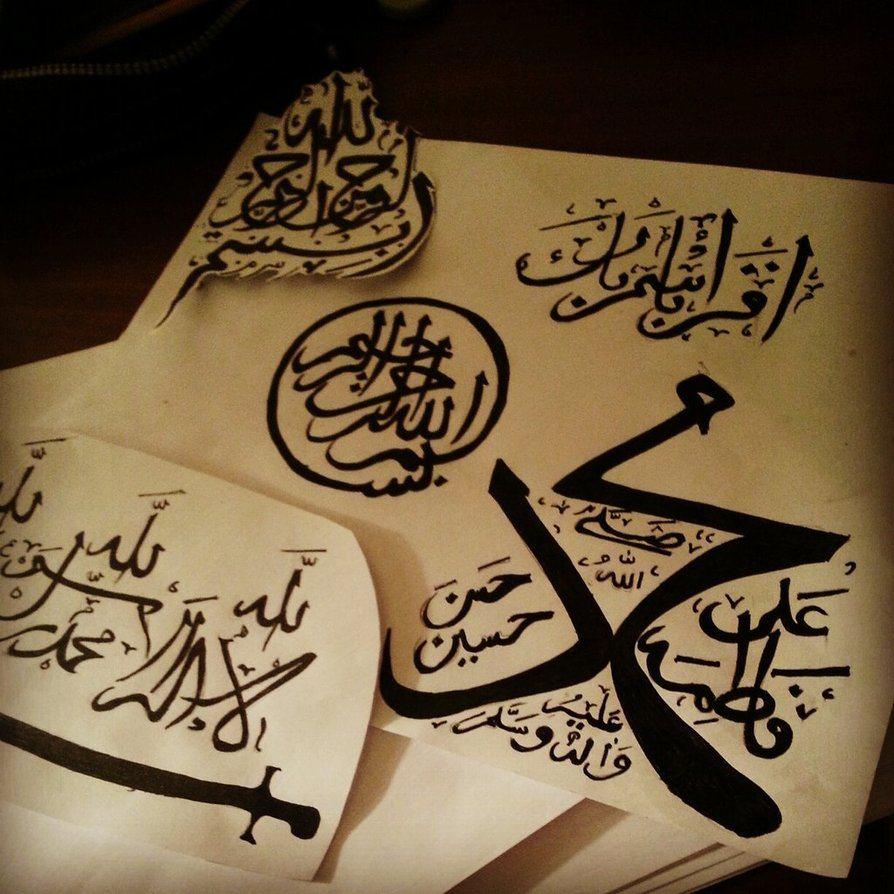 بسم الله الرحمن الرحيم
اقرأ باسم ربك
بسم الله الرحمن الرحيم
محمد
صلى
الله
عليه
واله وسلم
علي
فاطمة
حسن
حسين
لا إله إلا الله
محمد رسول الله